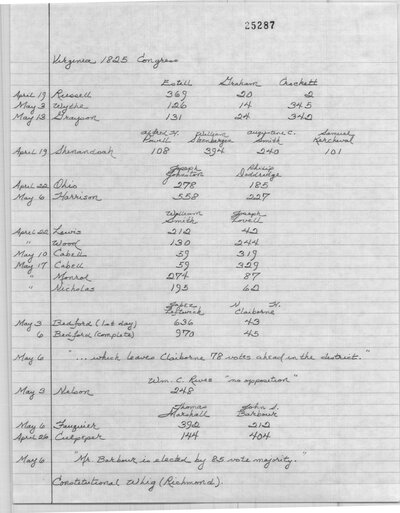 25287
Virginia 1825 Congress
Estill Graham Crockett
April 19 Russell 369 20 2
May 3 Wythe 126 14 345
May 13 Grayson 131 24 342
Alfred H. Powell William Steenbergen Augustine C. Smith Samuel Kercheval
April 19 Shenandoah 108 394 240 101
Joseph Johnston Philip Doddridge
April 22 Ohio 278 185
May 6 Harrison 558 227
William Smith Joseph Lovell
April 22 Lewis 212 42
" Wood 130 244
May 10 Cabell 59 319
May 17 Cabell 59 329
" Monroe 274 87
" Nicholas 195 62
Jabez Leftwich N. H. Claiborne
May 3 Bedford (1st day) 636 43
6 Bedford (complete) 970 45
May 6 "... which leaves Claiborne 78 votes ahead in the district."
Wm. C. Rives "no opposition"
May 3 Nelson 248
Thomas Marshall John S. Barbour
May 6 Fauquier 392 212
April 26 Culpeper 144 404
May 6 "Mr. Barbour is elected by 85 vote majority."
Constitutional Whig (Richmond).